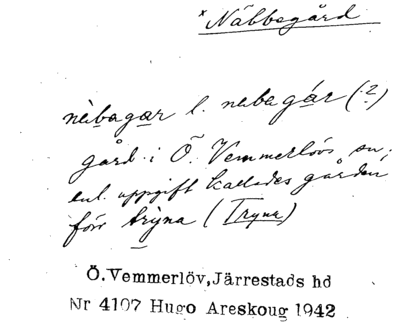 x Näbbagård
nèbagær l. nebagár (?)
gård i Ö. Vemmerlövs sn;
enl. uppgift kallades gården
förr trỳna (Tryna)
Ö.Vemmerlöv, Järrestads hd
Nr 4107 Hugo Areskoug 1942